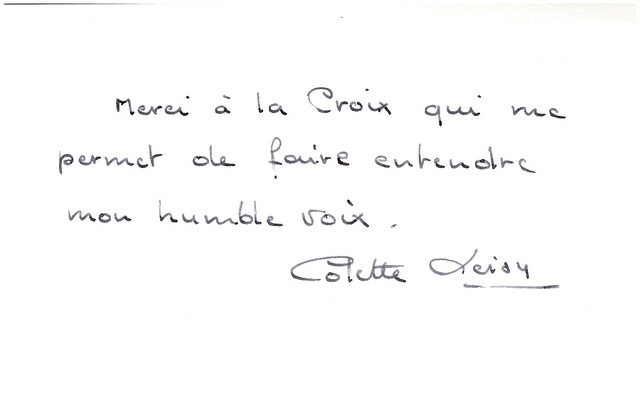 Merci à la Croix qui me
permet de faire entendre
mon humble voix.
Colette